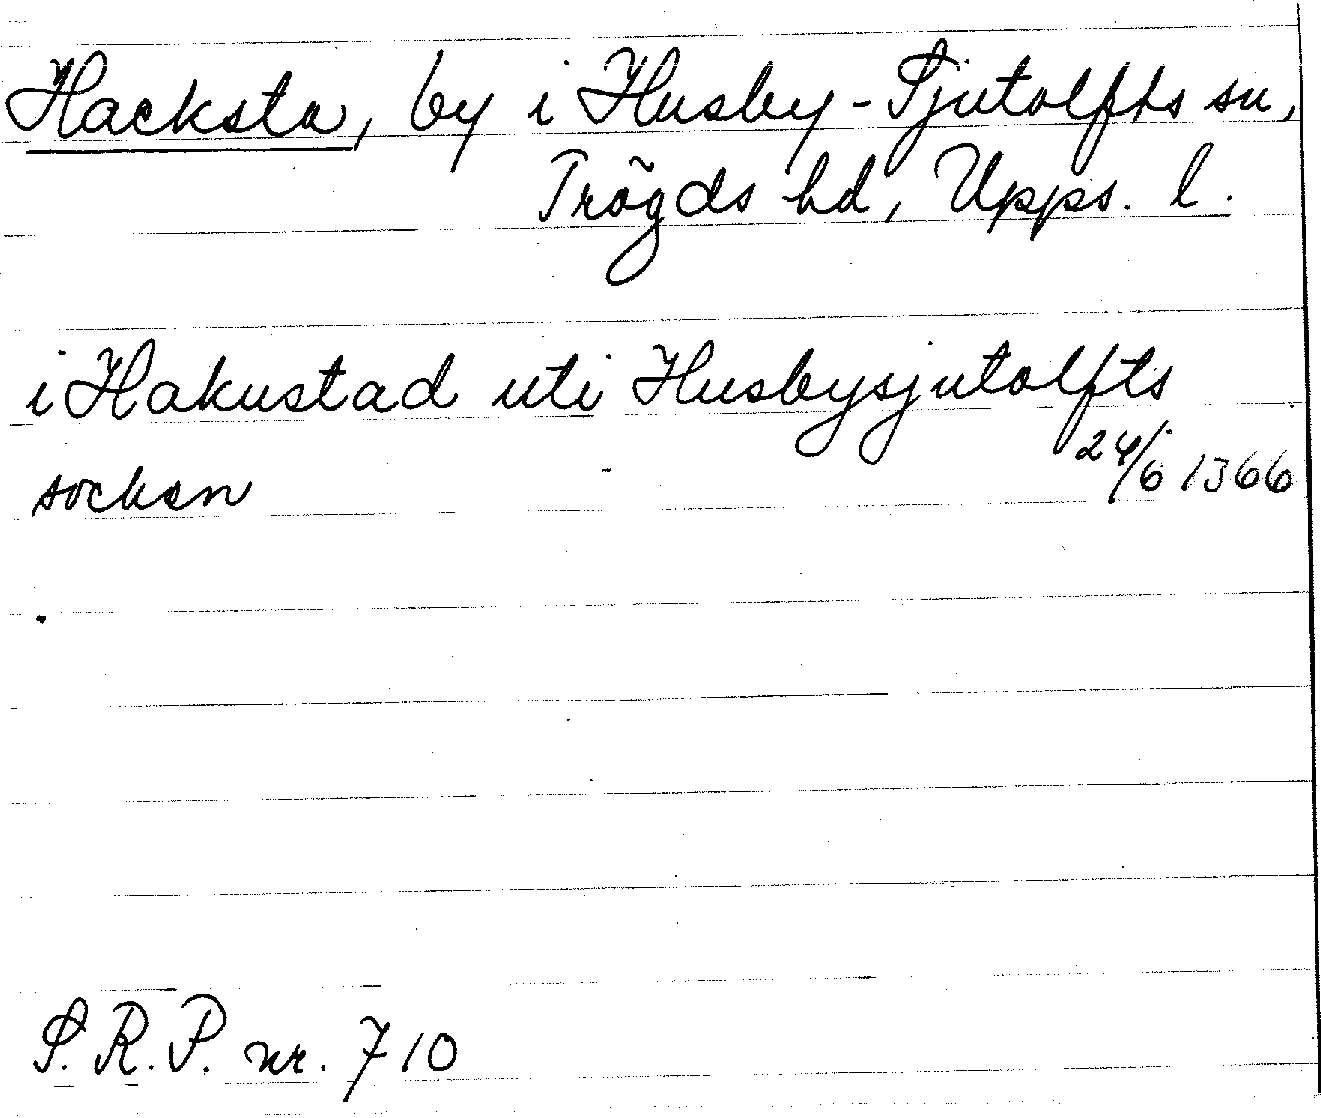 Hacksta, by i Husby-Sjutolfts sn,
Trögds hd, Upps. l.
i Hakustad uti Husbysjutolfts
socken 24/6 1366
S.R.P. nr. 710